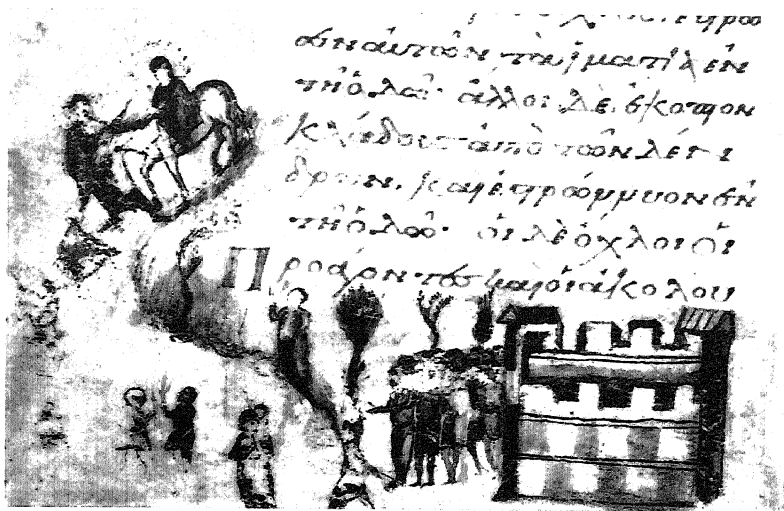 ἔστρω
σαν αὐτῶν τὰ ἱμάτια ἐν
τῇ ὁδῶ· ἄλλοι δὲ ἔκοπτον
κλάδους ἀπὸ τῶν δέν
δρων. καὶ ἐστρώννυον ἐν
τῇ ὁδῶ· οἱ δὲ ὄχλοι οἱ
Προάγοντες καὶ οἱ ἀκολου